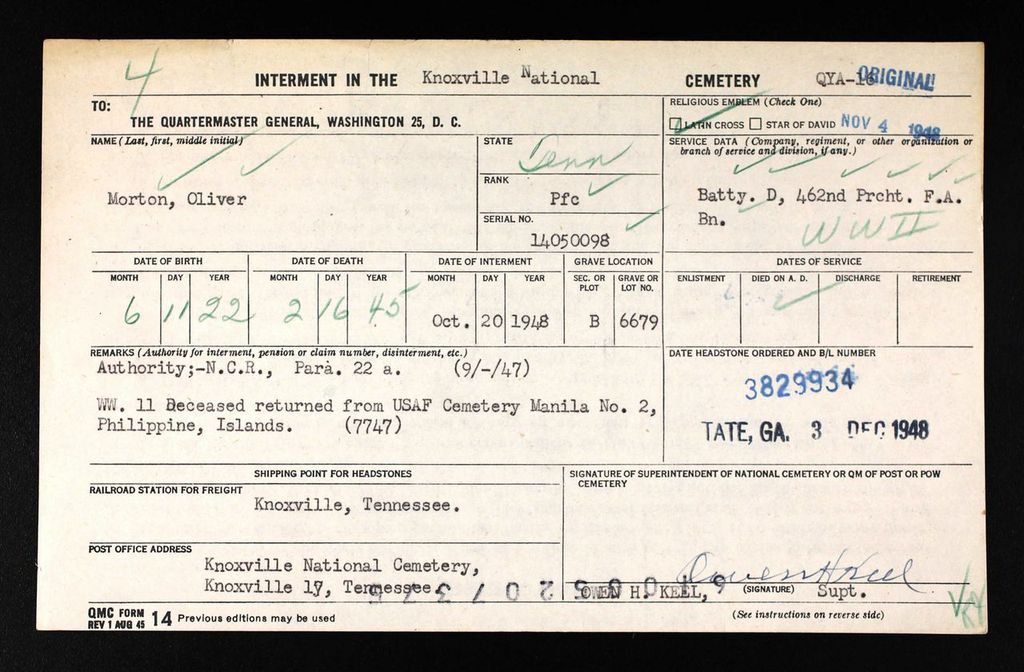 4
INTERMENT IN THE Knoxville National CEMETERY QYA-16 ORIGINAL
TO:
THE QUARTERMASTER GENERAL, WASHINGTON 25, D. C.
RELIGIOUS EMBLEM (Check One)
LATIN CROSS STAR OF DAVID NOV 4 1948
NAME (Last, first, middle initial)
Morton, Oliver
STATE
Tenn
RANK
Pfc
SERIAL NO.
14050098
SERVICE DATA (Company, regiment, or other organization or
branch of service and division, if any.)
Batty. D, 462nd Prcht. F.A.
Bn.
WW II
DATE OF BIRTH DATE OF DEATH DATE OF INTERMENT GRAVE LOCATION DATES OF SERVICE
MONTH DAY YEAR MONTH DAY YEAR MONTH DAY YEAR SEC. OR PLOT GRAVE OR LOT NO. ENLISTMENT DIED ON A. D. DISCHARGE RETIREMENT
6 11 22 2 16 45 Oct. 20 1948 B 6679
REMARKS (Authority for interment, pension or claim number, disinterment, etc.)
Authority;-N.C.R., Para. 22 a. (9/-/47)
WW. 11 Deceased returned from USAF Cemetery Manila No. 2,
Philippine, Islands. (7747)
DATE HEADSTONE ORDERED AND B/L NUMBER
3829934
TATE, GA. 3 DEC 1948
SHIPPING POINT FOR HEADSTONES
RAILROAD STATION FOR FREIGHT
Knoxville, Tennessee.
POST OFFICE ADDRESS
Knoxville National Cemetery,
Knoxville 17, Tennessee.
SIGNATURE OF SUPERINTENDENT OF NATIONAL CEMETERY OR QM OF POST OR POW
CEMETERY
Owen H Keel
OWEN H. KEEL, (SIGNATURE) Supt.
QMC FORM
REV 1 AUG 45 14 Previous editions may be used
(See instructions on reverse side)